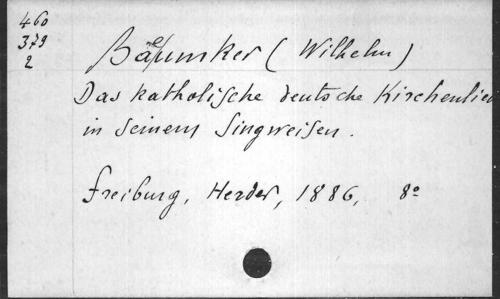 460
379
2
Bäumker (Wilhelm)
Das katholische deutsche Kirchenlied
in seinem Singweisen.
Freiburg, Herder, 1886, 8°